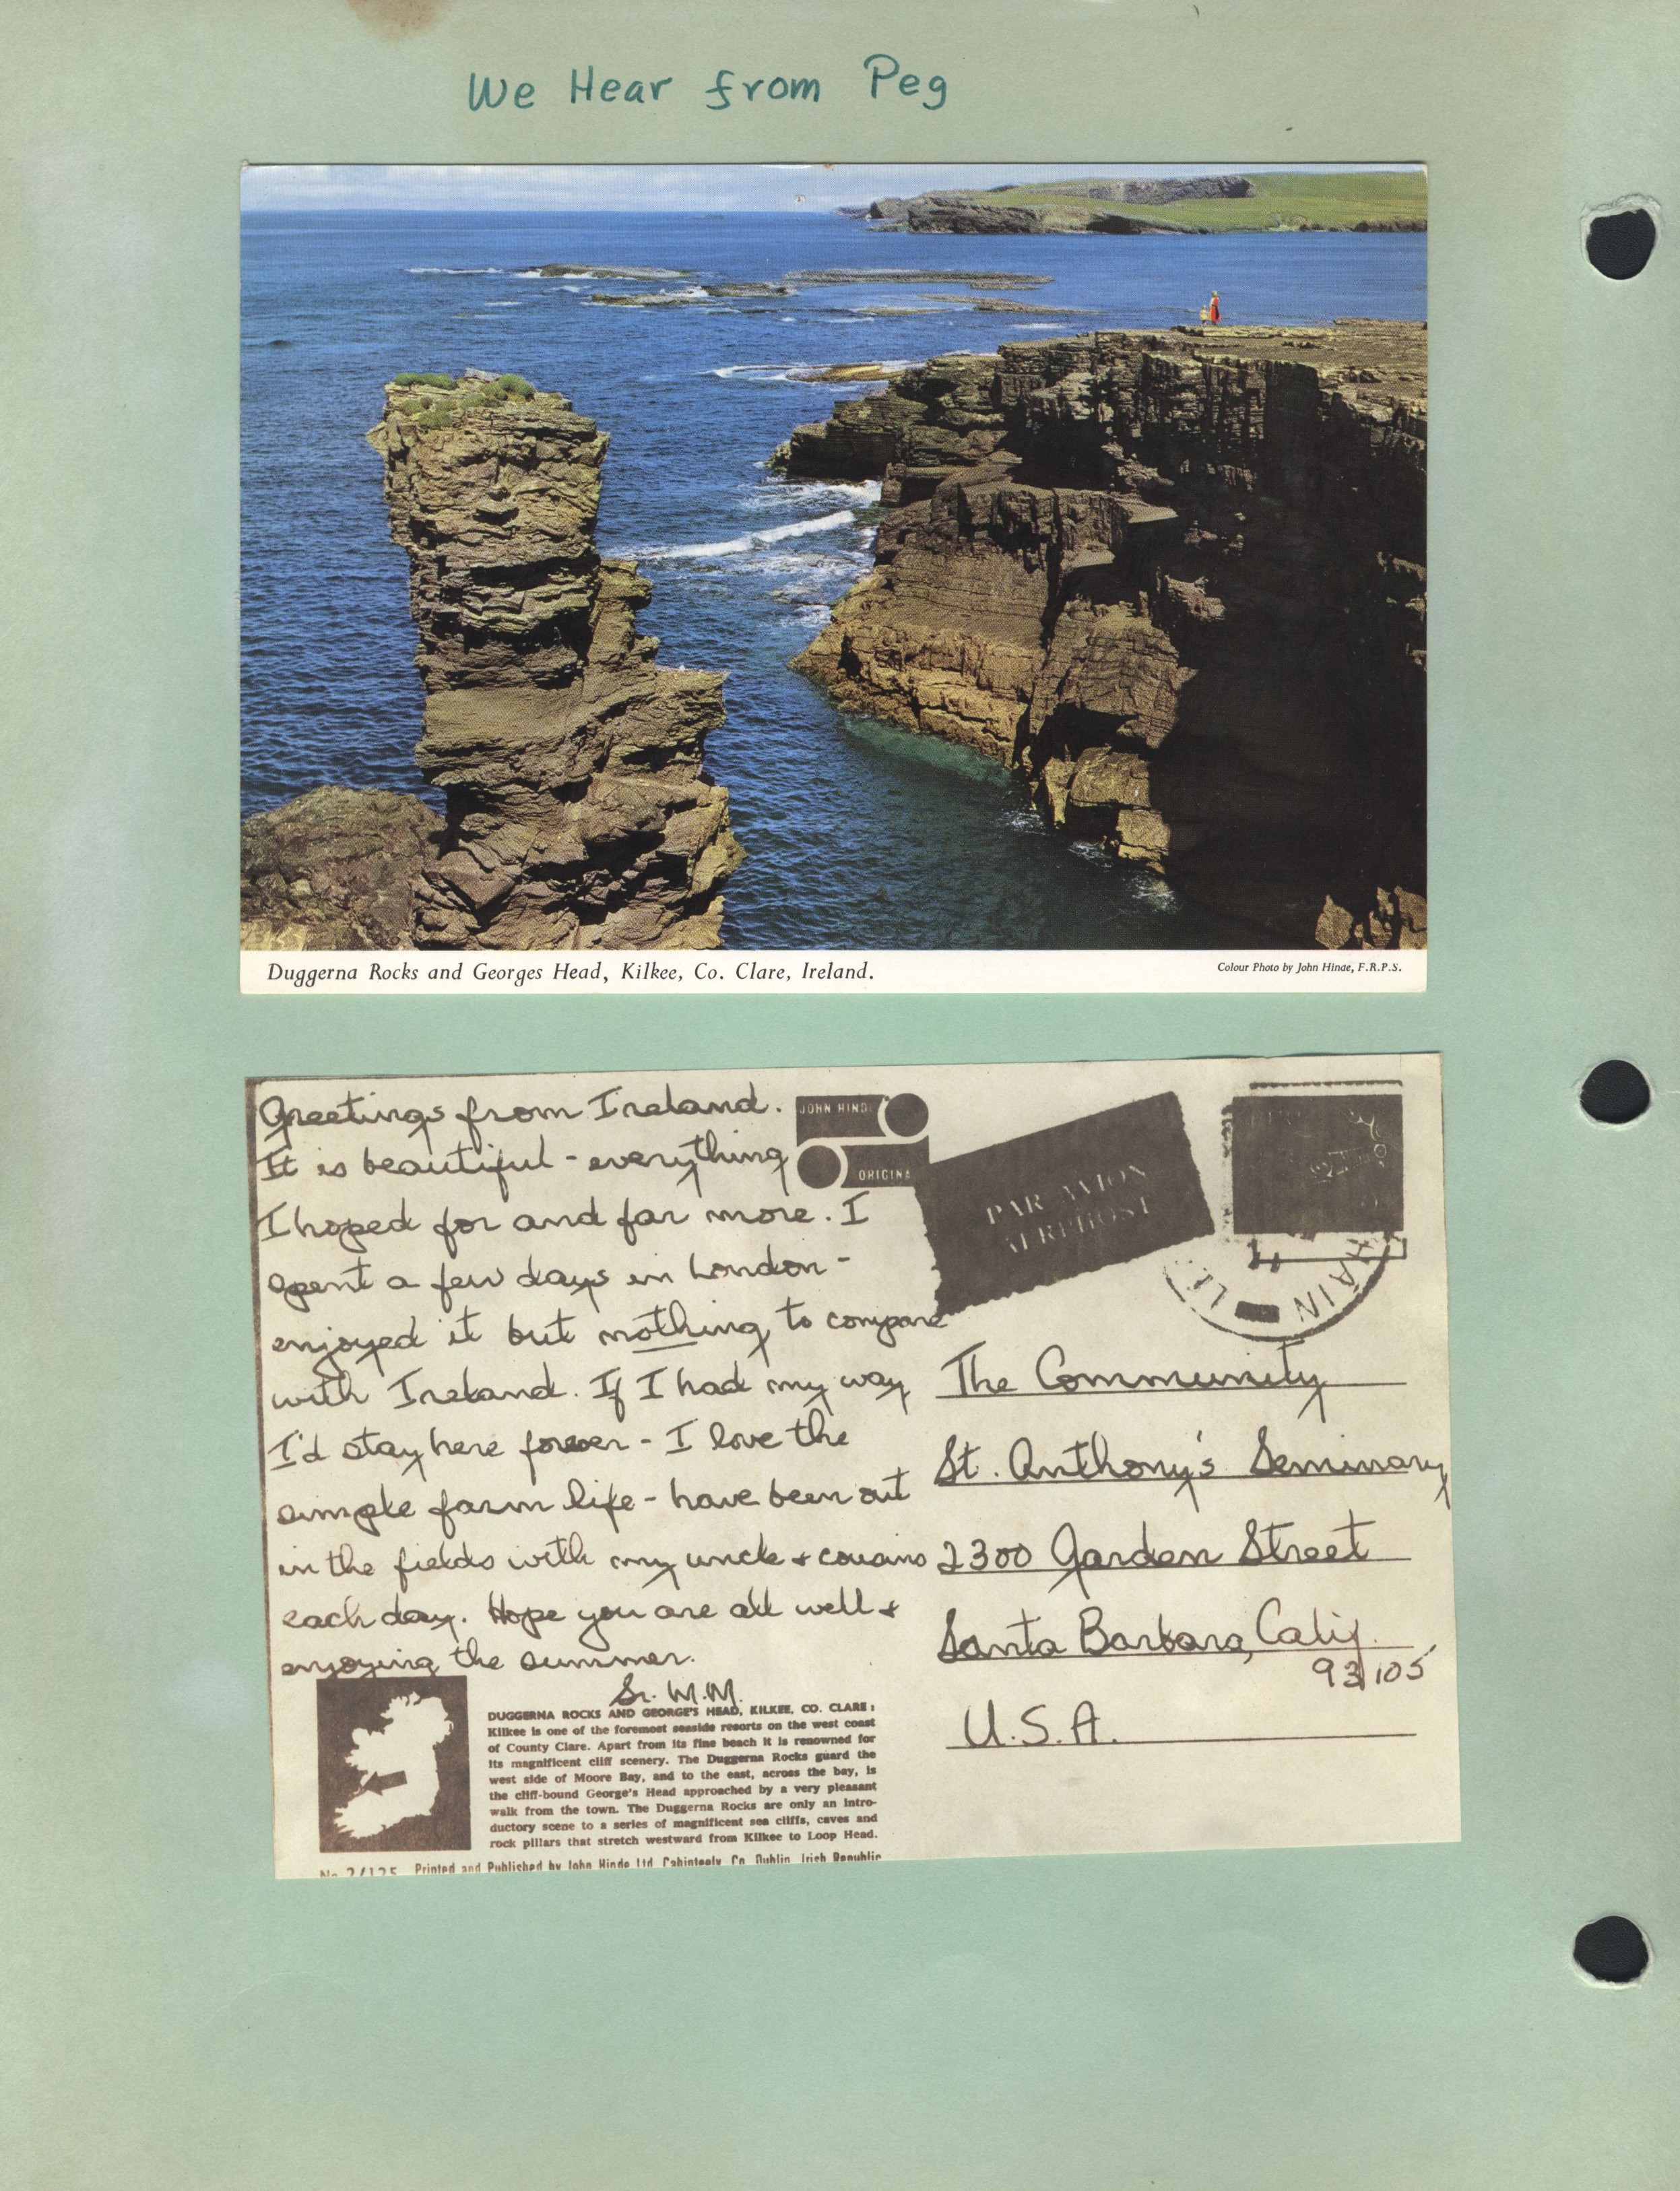 We Hear from Peg
Duggerna Rocks and Georges Head, Kilkee, Co. Clare, Ireland.
Colour Photo by John Hinde, F.R.P.S.
Greetings from Ireland.
It is beautiful - everything
I hoped for and far more. I
spent a few days in London -
enjoyed it but nothing to compare
with Ireland. If I had my way
I'd stay here forever - I love the
simple farm life - have been out
in the fields with my uncle & cousins
each day. Hope you are all well &
enjoying the summer.
Sr. M.M.
JOHN HINDE
ORIGINAL
PAR AVION
AERPHOST
The Community
St. Anthony's Seminary
2300 Garden Street
Santa Barbara, Calif.
93105
U.S.A.
DUGGERNA ROCKS AND GEORGE'S HEAD, KILKEE, CO. CLARE;
Kilkee is one of the foremost seaside resorts on the west coast
of County Clare. Apart from its fine beach it is renowned for
its magnificent cliff scenery. The Duggerna Rocks guard the
west side of Moore Bay, and to the east, across the bay, is
the cliff-bound George's Head approached by a very pleasant
walk from the town. The Duggerna Rocks are only an intro-
ductory scene to a series of magnificent sea cliffs, caves and
rock pillars that stretch westward from Kilkee to Loop Head.
No 2/125 Printed and Published by John Hinde Ltd. Cabinteely, Co. Dublin, Irish Republic